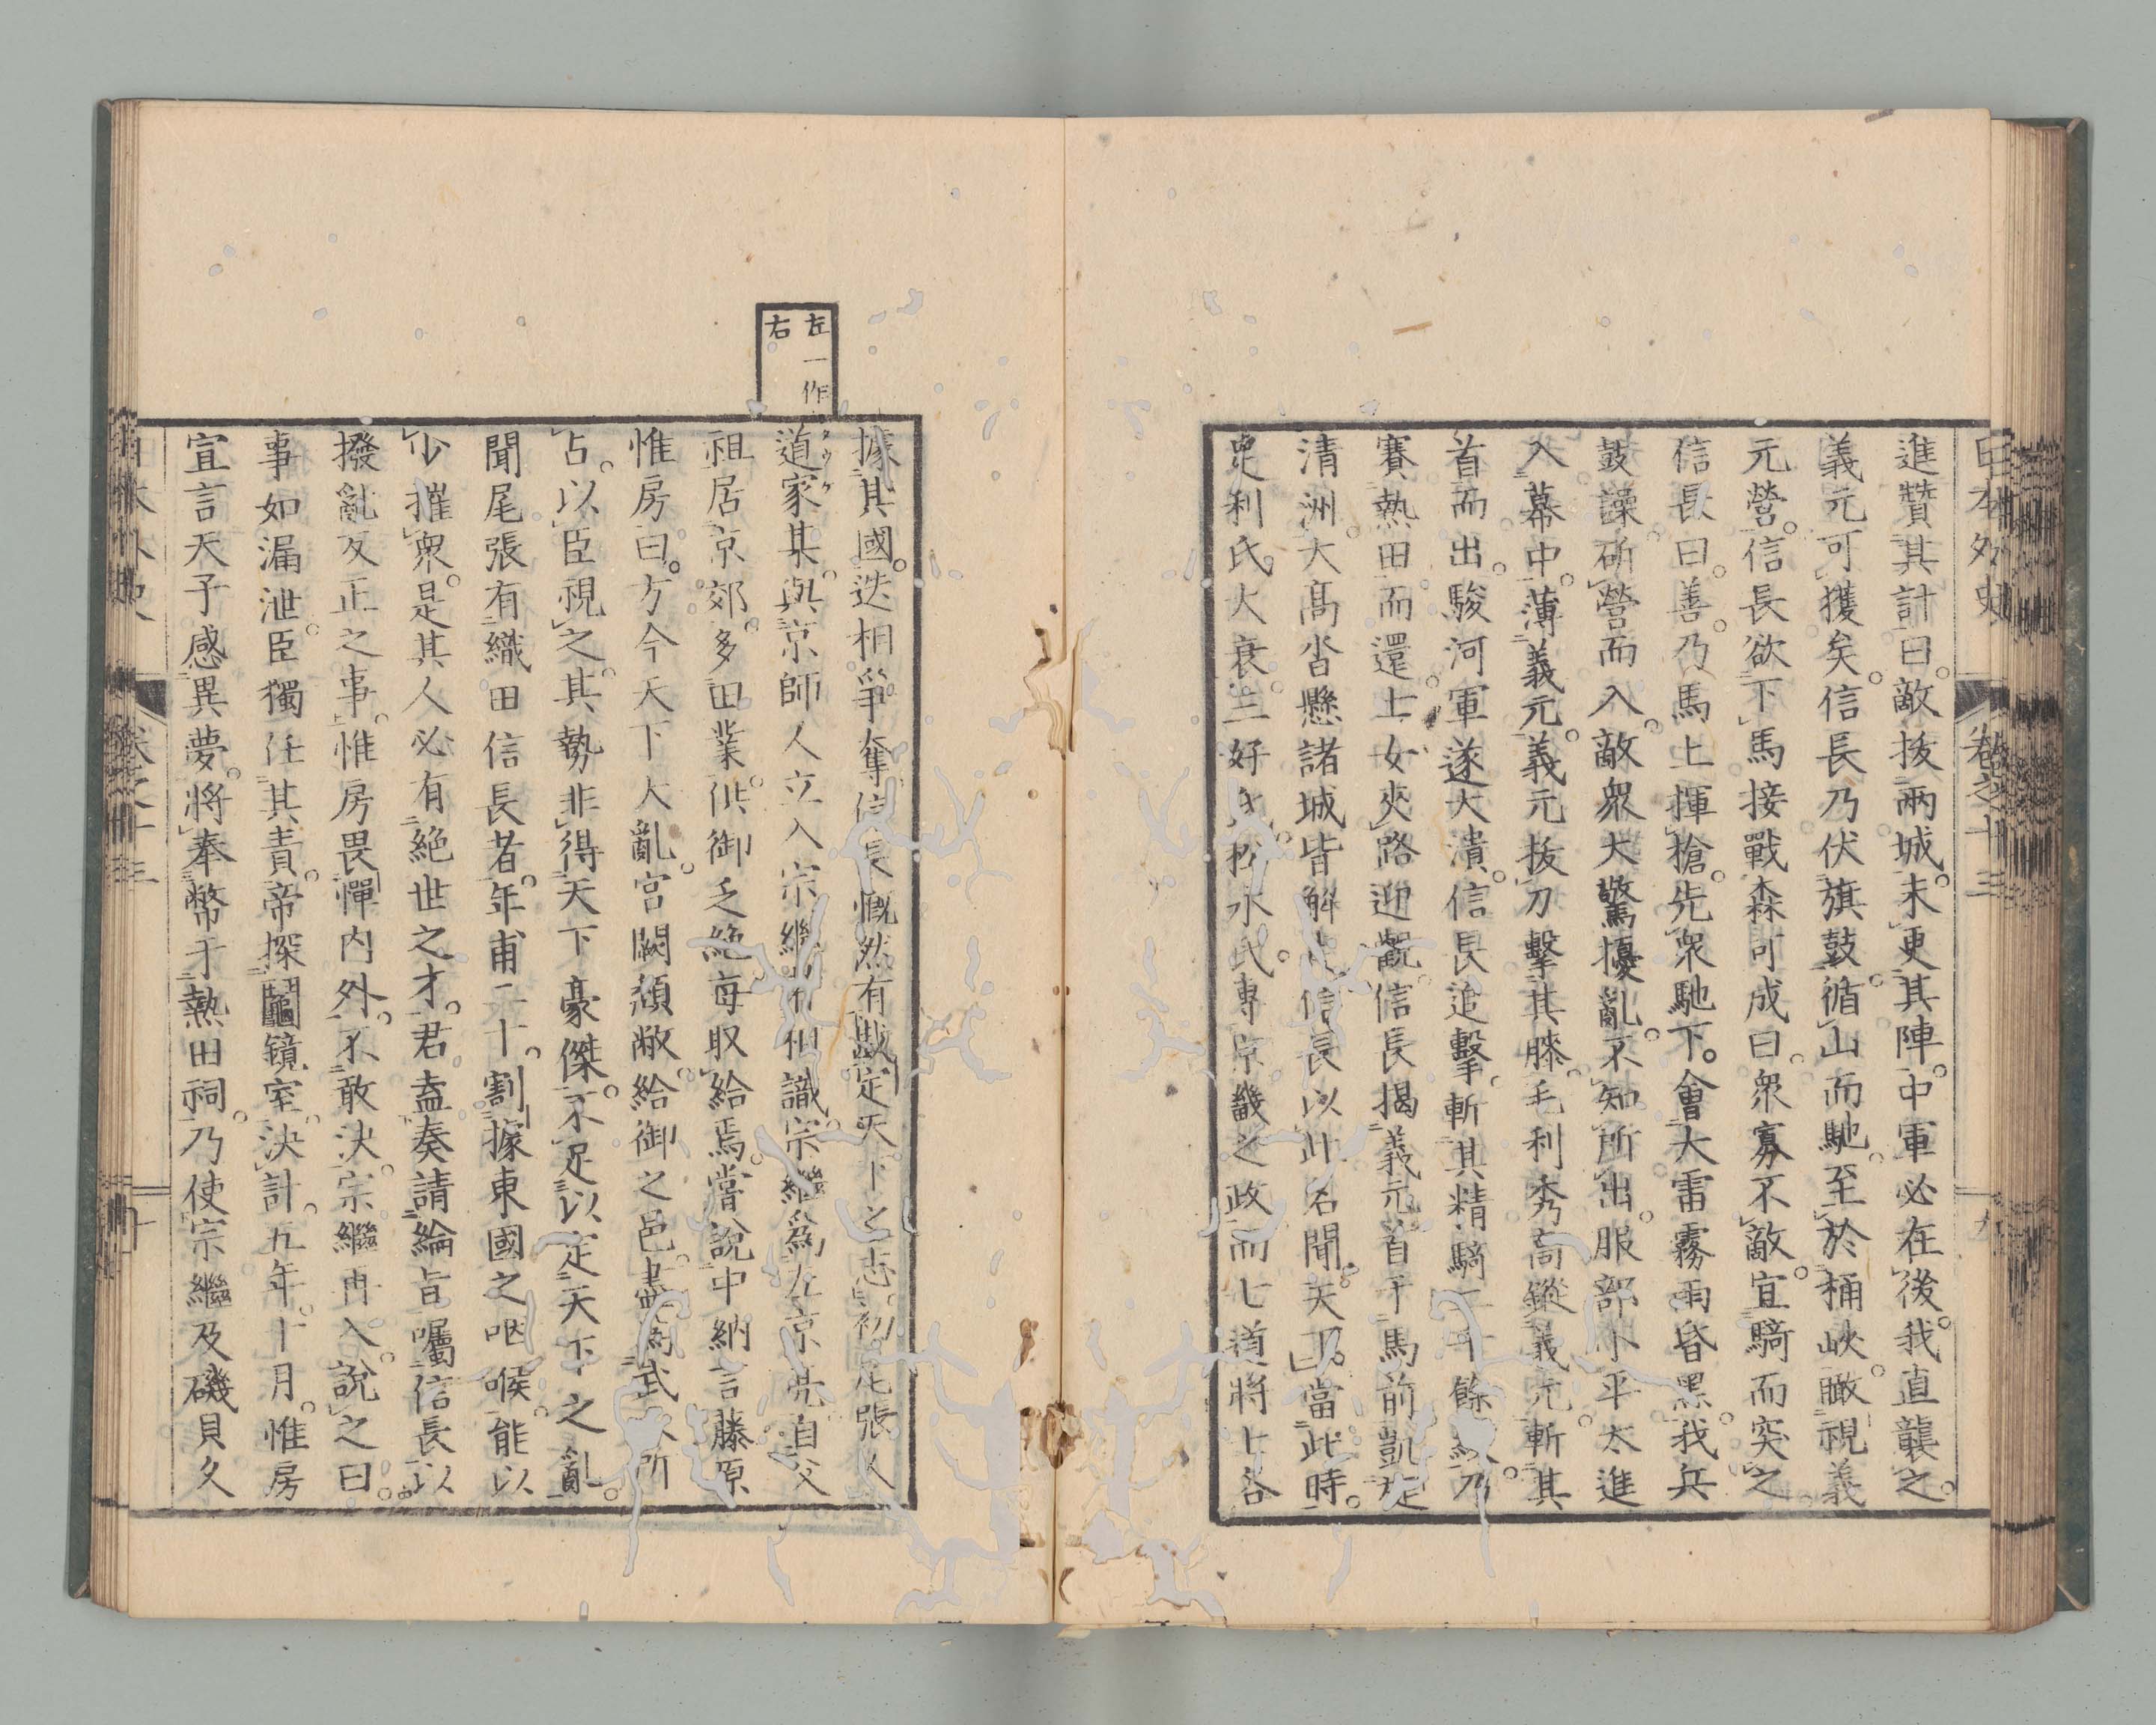 日本外史 卷之十三 九
進贊其計曰。敵拔兩城。未更其陣。中軍必在後。我直襲之。
義元可獲矣。信長乃伏旗鼓。循山而馳。至於桶峽。瞰視義
元營。信長欲下馬接戰。森可成曰。衆寡不敵。宜騎而突之。
信長曰。善。乃馬上揮槍。先衆馳下。會大雷霧雨昏黑。我兵
鼓譟斫營而入。敵衆大驚擾亂。不知所出。服部小平太進
入幕中。薄義元。義元拔刀擊其膝。毛利秀高鏦義元斬其
首而出。駿河軍遂大潰。信長追擊。斬其精騎二千餘級。乃
賽熱田而還。士女夾路迎觀。信長揭義元首于馬前凱旋
清洲。大高沓懸諸城皆解走。信長以此名聞天下。當此時。
足利氏大衰。三好氏松永氏。專京畿之政。而七道將士各
左一作
右
據其國。迭相爭奪。信長慨然有戡定天下之志。初尾張人
道家某。與京師人立入宗繼相識。宗繼爲左京亮。自父
祖居京郊。多田業。供御乏絶。每取給焉。嘗說中納言藤原
惟房曰。方今天下大亂。宮闕頽敝。給御之邑。盡爲武人所
占。以臣視之。其勢非得天下豪傑。不足以定天下之亂。
聞尾張有織田信長者。年甫二十。割據東國之咽喉。能以
少摧衆。是其人必有絶世之才。君盍奏請綸旨囑信長以
撥亂反正之事。惟房畏憚内外。不敢決。宗繼再入。說之曰。
事如漏泄。臣獨任其責。帝探鬮鏡室。決計。五年。十月。惟房
宣言天子感異夢。將奉幣于熱田祠。乃使宗繼及磯貝久